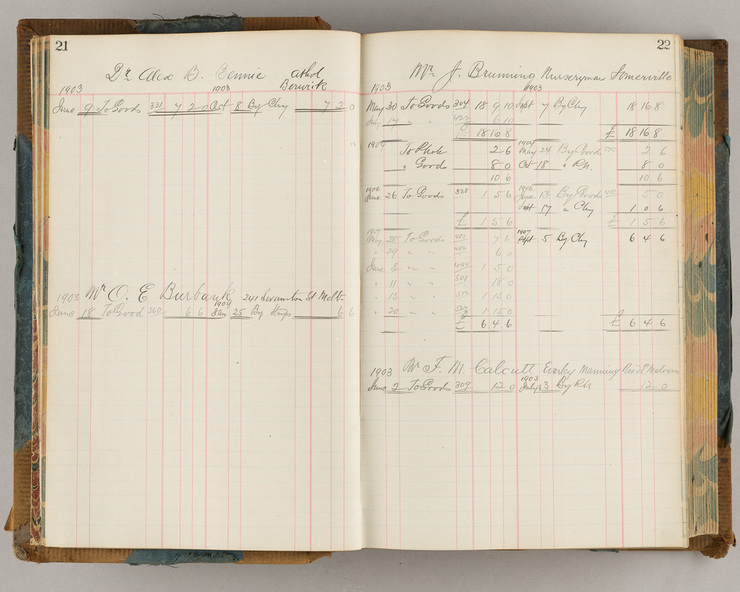 21
Dr Alex B. Rennie Athol
Berwick
1903 1903
June 9 To Goods 331 7 2 0 Oct 8 By Chq 7 2 0
1903 Mr O. E Burbank 241 Swanston St Melb
1904
June 18 To Good 360 6 6 Jan 25 By 6 6
22
Mr J. Brunning Nurseryman Somerville
1903 1903
May 30 To Goods 304 18 9 10 Sept 7 By Chq 18 16 8
19 " " 6 10
£ 18 16 8 £ 18 16 8
1904
To 2 6 May 24 By Goods 2 6
" Good 8 0 Oct 18 " 8 0
10 6 10 6
1906 1906
June 26 To Goods 828 1 5 6 June 13 By Goods 5 0
Sept 17 " Chq 1 0 6
£ 1 5 6 £ 1 5 6
1907 1907
May 28 To Goods 7 6 Sept 5 By Chq 6 4 6
" 29 " " 6 0
June 3 " " 1 5 0
" 11 " " 18 0
" 13 " " 1 13 0
" 20 " " 1 15 0
£ 6 4 6 £ 6 4 6
1903 Mr F. M. Calcutt
1903
June 2 To Goods 309 12 0 July 3 By 12 0